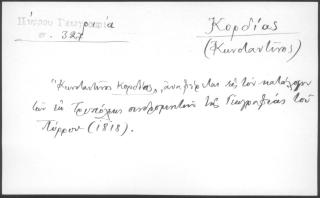 Πύρρου Γεωγραφία
σ. 327
Κορδίας
(Κωνσταντῖνος)
Κωνσταντῖνος Κορδίας, ἀναφέρεται εἰς τὸν κατάλογον
τῶν ἐκ Τριπόλεως συνδρομητῶν τῆς Γεωγραφίας τοῦ
Πύρρου (1818).